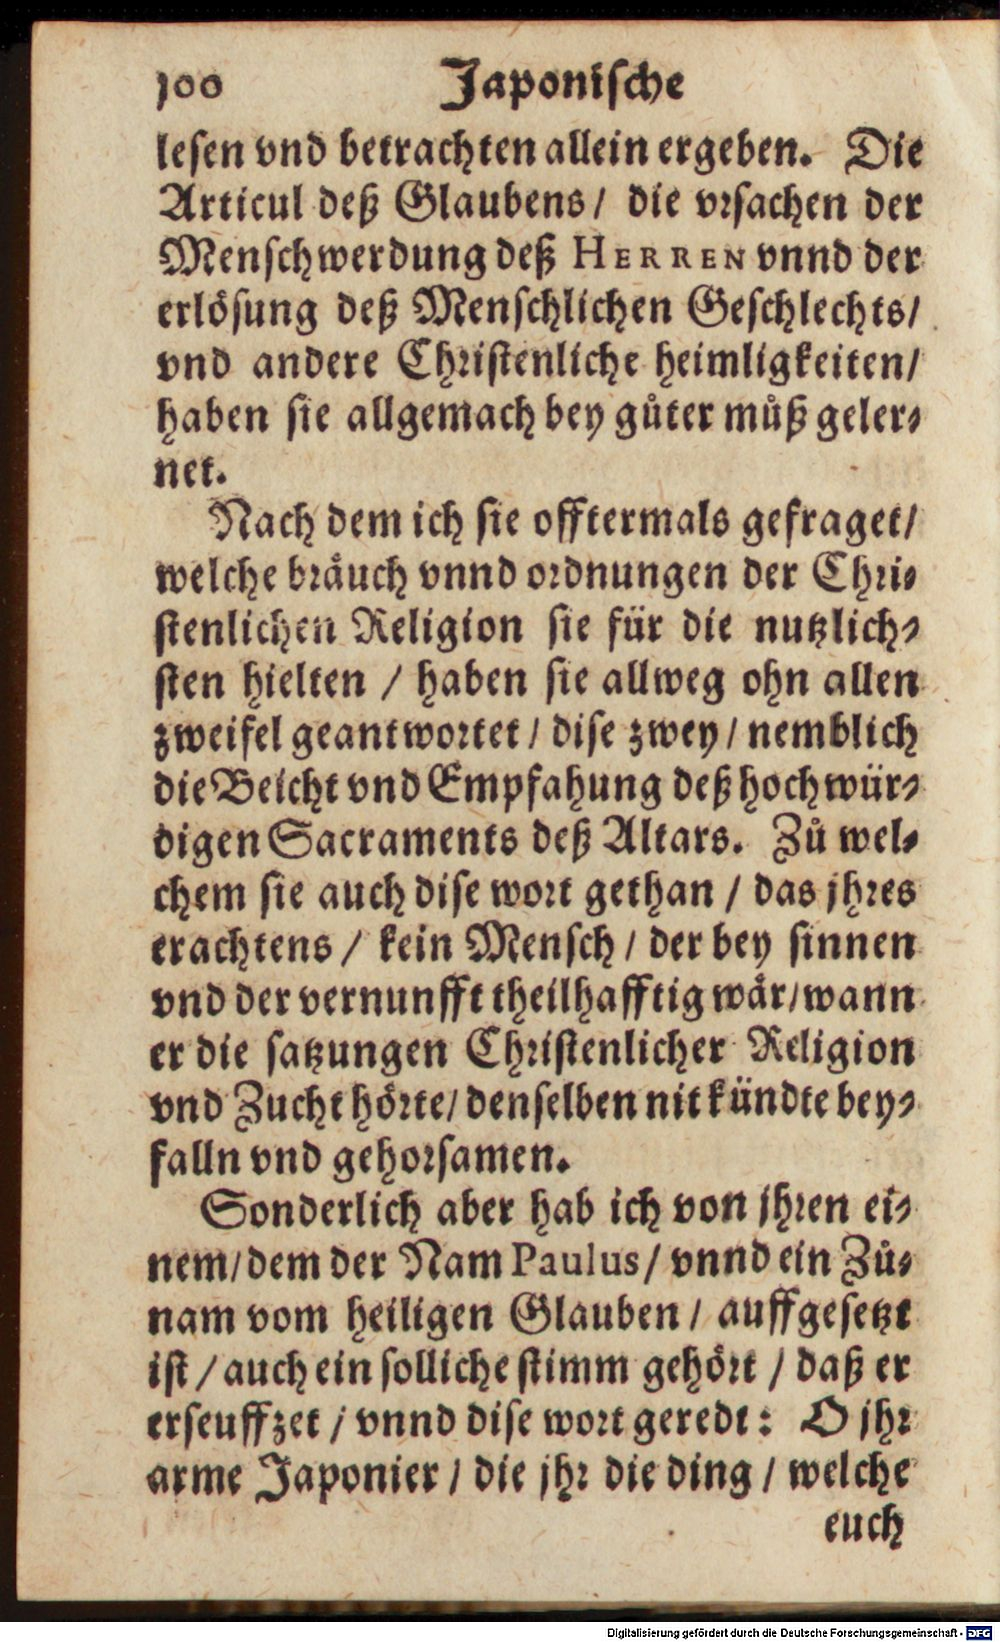 100 Japonische
lesen vnd betrachten allein ergeben. Die
Articul deß Glaubens/ die vrsachen der
Menschwerdung deß HERREN vnnd der
erlösung deß Menschlichen Geschlechts/
vnd andere Christenliche heimligkeiten/
haben sie allgemach bey gůter můß geler⸗
net.
Nach dem ich sie offtermals gefraget/
welche bräuch vnnd ordnungen der Chri⸗
stenlichen Religion sie für die nutzlich⸗
sten hielten / haben sie allweg ohn allen
zweifel geantwortet / dise zwey / nemblich
die Beicht vnd Empfahung deß hochwür⸗
digen Sacraments deß Altars. Zů wel⸗
chem sie auch dise wort gethan / das jhres
erachtens / kein Mensch / der bey sinnen
vnd der vernunfft theilhafftig wär/wann
er die satzungen Christenlicher Religion
vnd Zucht hörte/ denselben nit kündte bey⸗
falln vnd gehorsamen.
Sonderlich aber hab ich von jhren ei⸗
nem/dem der Nam Paulus/ vnnd ein Zů⸗
nam vom heiligen Glauben / auffgesetzt
ist / auch ein solliche stimm gehört / daß er
erseuffzet / vnnd dise wort geredt: O jhr
arme Japonier / die jhr die ding / welche
euch
Digitalisierung gefördert durch die Deutsche Forschungsgemeinschaft - DFG